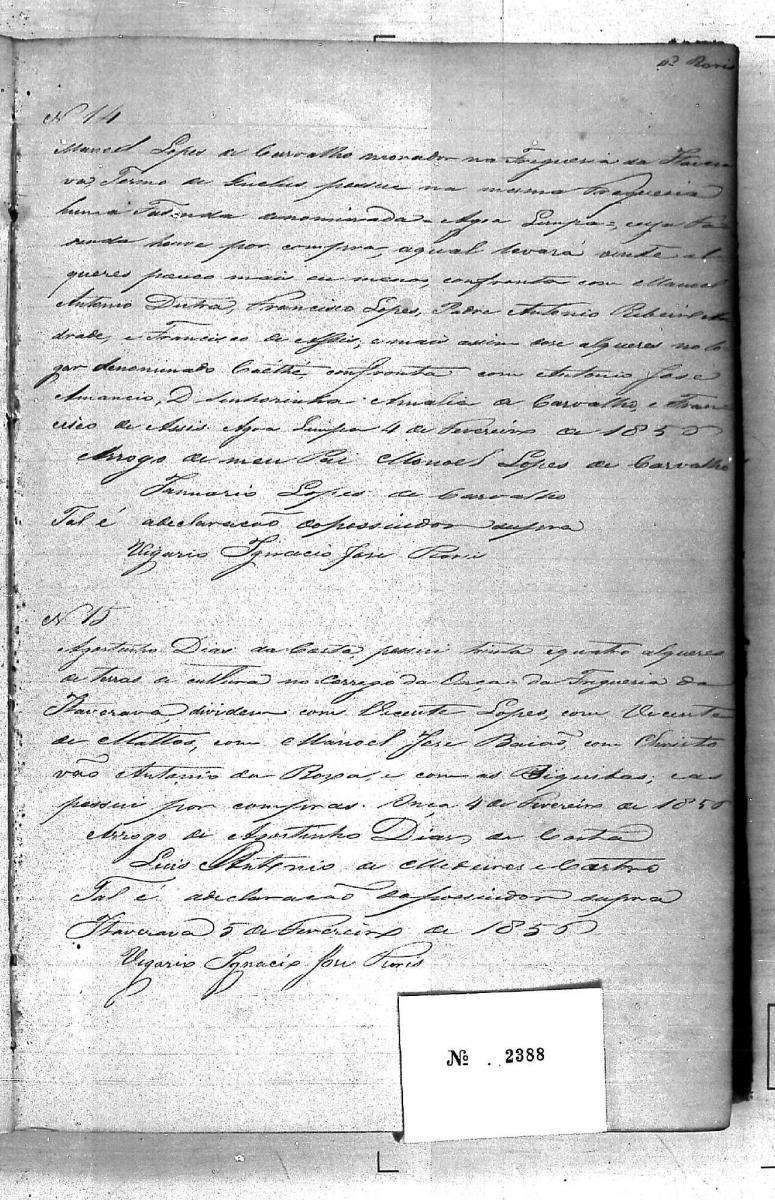 Roris
N 14
Manoel Lopes de Carvalho morador na Freguesia da Itavera
va, Termo de Queluz possui na mesma Freguesia
huma Fasenda denominada = Agoa Limpa =, cuja Fa
senda houve por compra, aqual levará vinte al-
queres pouco mais ou menos, confronta com Manoel
Antonio Dutra, Francisco Lopes, Padre Antonio Ribeiro An
drade, e Francisco de Assis, e mais assim dose alqueres no lo
gar denominado Caethé, confronta com Antonio Jose
Amancio, D. Senhorinha Amalia de Carvalho, e Fran-
cisco de Assis Agoa Limpa 4 de Fevereiro de 1856
Arrogo de meu Pai Manoel Lopes de Carvalho
Januario Lopes de Carvalho
Tal é adeclaração dopossuidor supra
Vigario Ignacio Jose Roris
N 15
Agostinho Dias da Costa, possui trinta equatro alqueres
de terras de cultura no Corrego da Onça da Freguesia da
Itaverava, dividem com Vicente Lopes, com Vicente
de Mattos, com Manoel Jose Baião, com Christo
vão Antonio da Roxa, e com as ; e as
possui por compras. Onça 4 de Fevereiro de 1856
Arrogo de Agostinho Dias da Costa
Luis Antonio de Medeiros e Castro
Tal é adeclaração dopossuidor supra
Itaverava 5 de Fevereiro de 1856
Vigario Ignacio Jose Roris
Nº . 2388